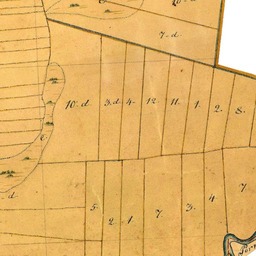 7. d
10. d 3. d 4. 12. 11. 1. 2. 8.
c.
d
5. 2. 1. 7. 3. 4. 7